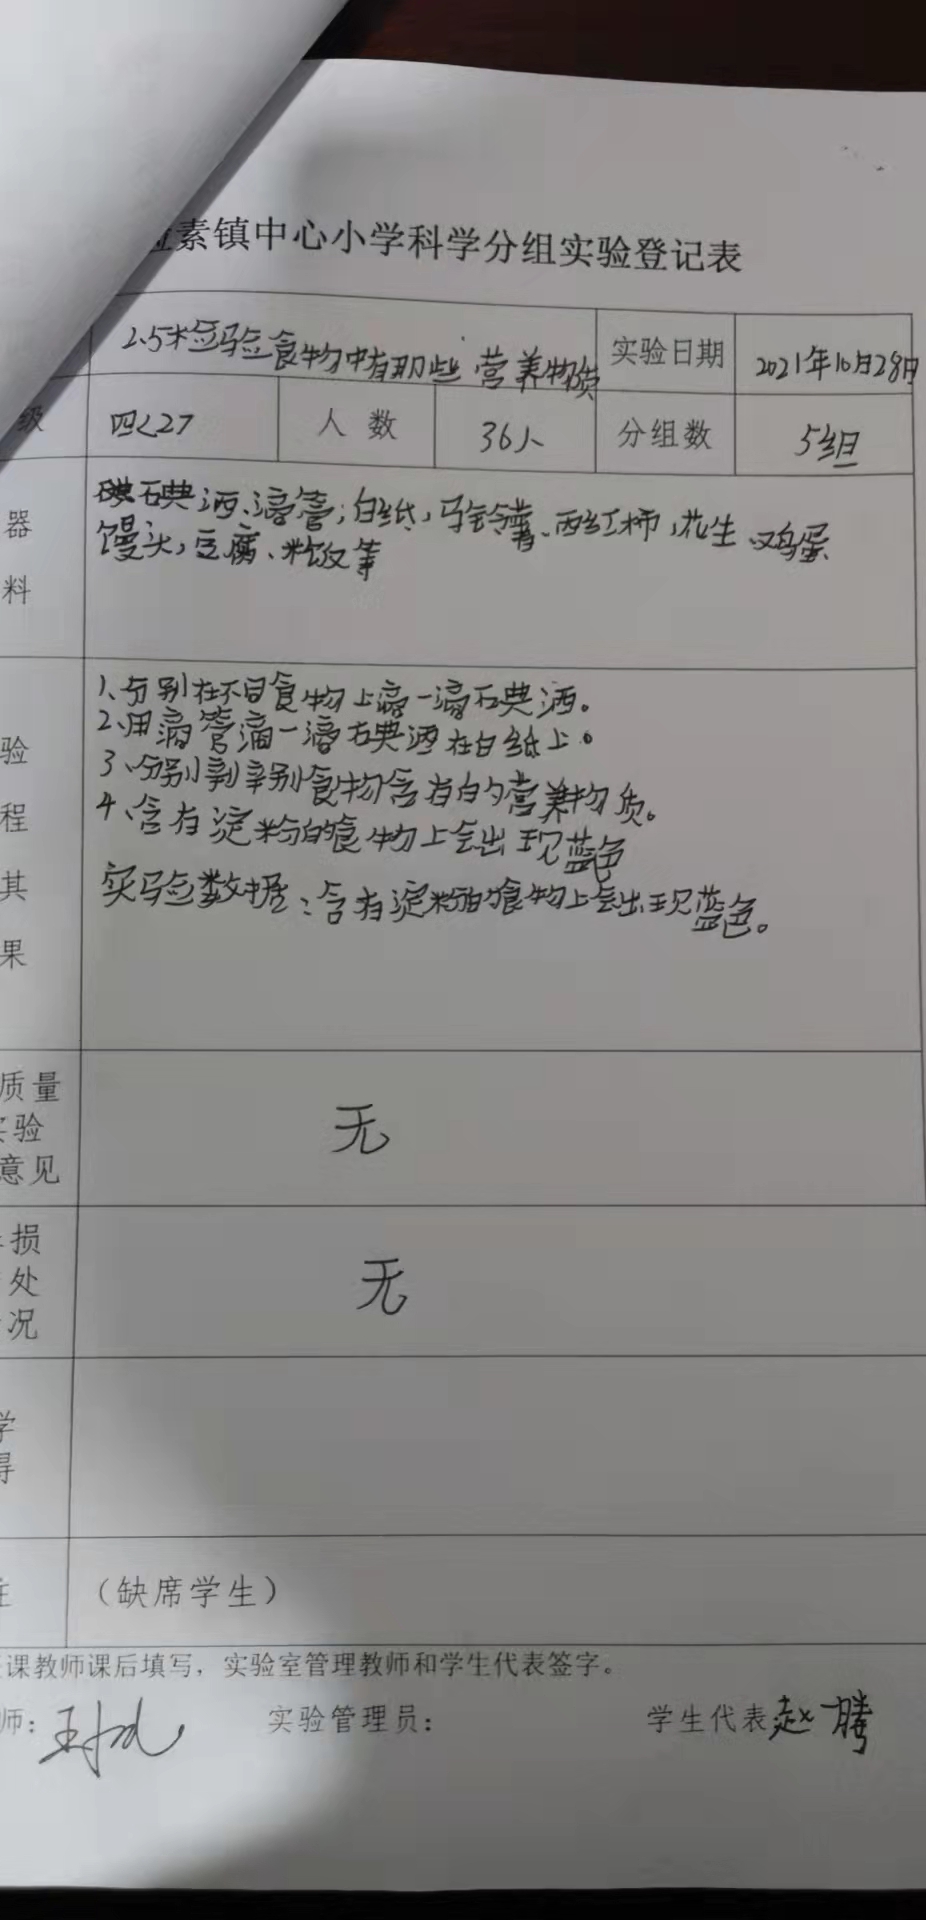 素镇中心小学科学分组实验登记表
2.5检验食物中有那些营养物质 实验日期 2021年10月28日
级 四<27 人数 36人 分组数 5组
器 碘酒、滴管,白纸,马铃薯、西红柿,花生、鸡蛋
馒头,豆腐、米饭等
料
1、分别在不同食物上滴一滴碘酒。
2、用滴管滴一滴碘酒在白纸上。
验 3、分别辨别食物含有的营养物质。
程 4、含有淀粉的食物上会出现蓝色
其 实验数据:含有淀粉的食物上会出现蓝色。
果
质量
验 无
意见
损
处 无
况
学
得
(缺席学生)
课教师课后填写,实验室管理教师和学生代表签字。
师: 实验管理员: 学生代表 赵腾